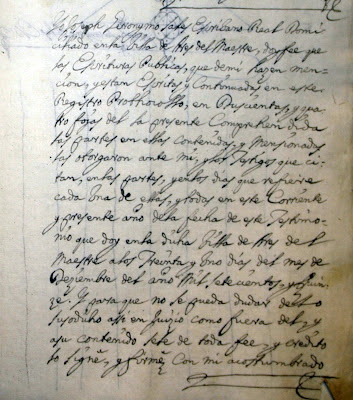 Yo Joseph Geronimo Sales Escribano Real Domi
ciliado en la Villa de Ares del Maestre, doy fee que
las Escrituras Publicas, que de mi hazen men
cion, y estan Escritas y Continuadas en este
Registro Prothocollo, en Duscientas, y qua
tro fojas del la presente Comprehendida
las partes en ellas contenidas, y Mensionadas
las otorgaron ante mi, y los Testigos que ci
tan, en las partes, y en los dias que refiere
cada una de ellas, y todas en este Corriente
y presente año de la fecha de este Testimo
nio que doy en la dicha Villa de Ares del
Maestre a los Treynta y uno dias del mes de
Deziembre del año Mil setecientos, y quin
ze. Y para que no se pueda dudar de lo
susodicho assi en Juizio como fuera del, y
a su contenido se le de toda fee, y credito
lo signé, y firmé Con mi acostumbrado